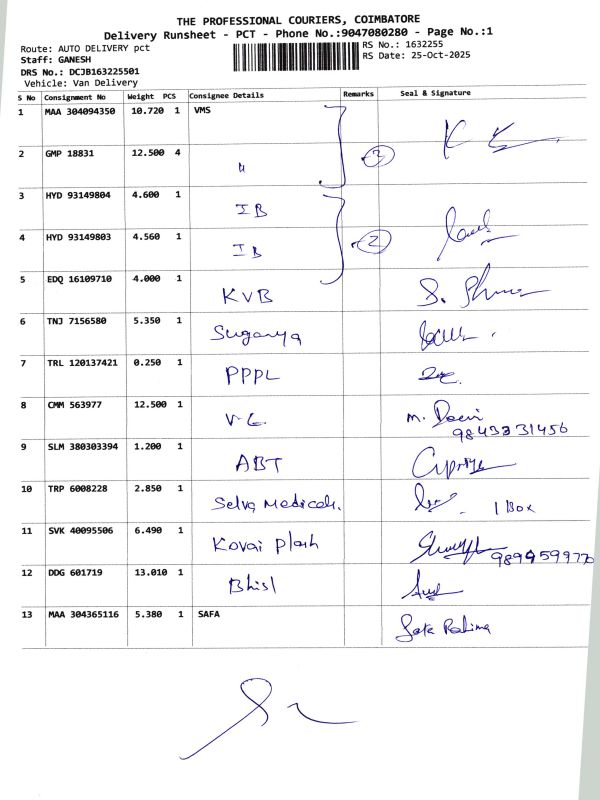 THE PROFESSIONAL COURIERS, COIMBATORE
Delivery Runsheet - PCT - Phone No.:9047080280 - Page No.:1
Route: AUTO DELIVERY pct
RS No.: 1632255
Staff: GANESH
RS Date: 25-Oct-2025
DRS No.: DCJB163225501
Vehicle: Van Delivery
S No Consignment No Weight PCS Consignee Details Remarks Seal & Signature
1 MAA 304094350 10.720 1 VMS
2 GMP 18831 12.500 4 "
3 HYD 93149804 4.600 1 IB
4 HYD 93149803 4.560 1 IB 2
5 EDQ 16109710 4.000 1 KVB
6 TNJ 7156580 5.350 1 Suganya
7 TRL 120137421 0.250 1 PPPL
8 CMM 563977 12.500 1 m. Devi
9843331456
9 SLM 380303394 1.200 1 ABT
10 TRP 6008228 2.850 1 Selva Medicals. 1 Box
11 SVK 40095506 6.490 1 Kovai plash
9899599770
12 DDG 601719 13.010 1
13 MAA 304365116 5.380 1 SAFA